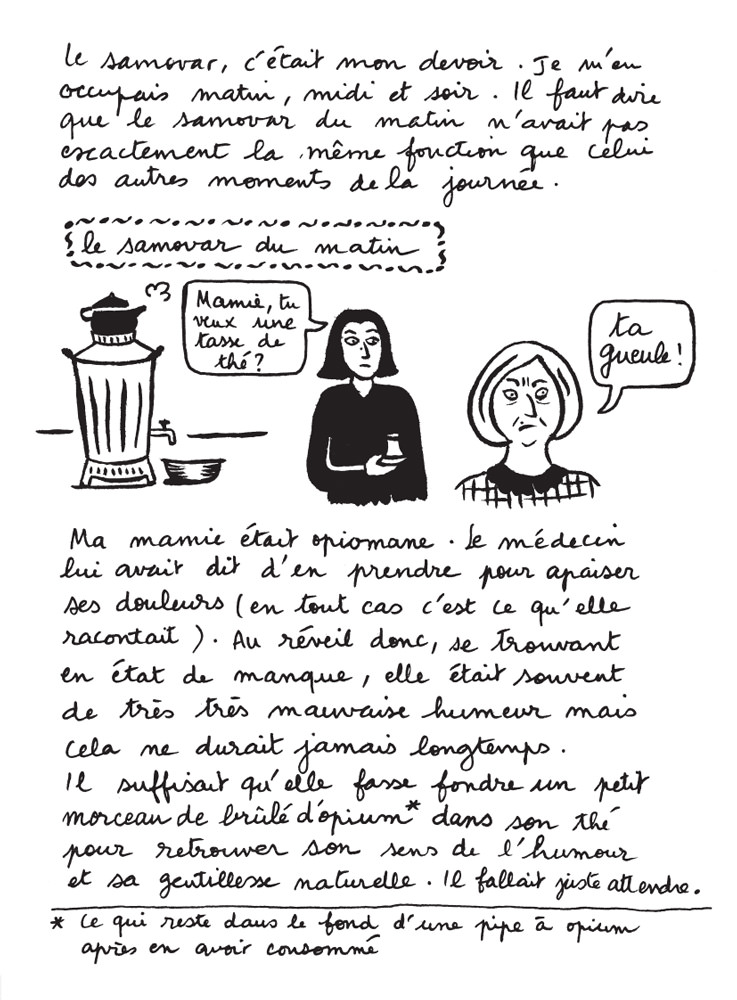 Le samovar, c'était mon devoir. Je m'en
occupais matin, midi et soir. Il faut dire
que le samovar du matin n'avait pas
exactement la même fonction que celui
des autres moments de la journée.
le samovar du matin
Mamie, tu
veux une
tasse de
thé?
ta
gueule!
Ma mamie était opiomane. Le médecin
lui avait dit d'en prendre pour apaiser
ses douleurs (en tout cas c'est ce qu'elle
racontait). Au réveil donc, se trouvant
en état de manque, elle était souvent
de très très mauvaise humeur mais
cela ne durait jamais longtemps.
Il suffisait qu'elle fasse fondre un petit
morceau de brûlé d'opium* dans son thé
pour retrouver son sens de l'humour
et sa gentillesse naturelle. Il fallait juste attendre.
* Ce qui reste dans le fond d'une pipe à opium
après en avoir consommé